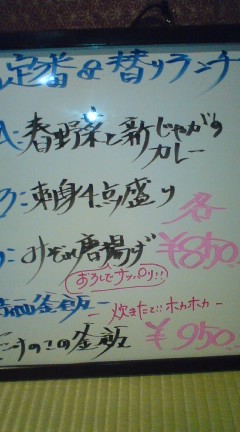 定番&替りランチ
A:春野菜と新じゃがの
カレー
B:刺身4点盛り
各
C:みぞれ唐揚げ ¥850
おろしでサッパリ!!
釜飯
ー炊きたて!!ホカホカー
たけのこの釜飯 ¥950